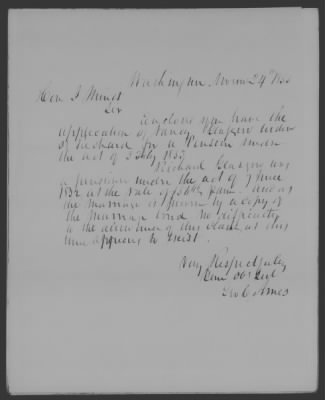 Washington Novem 24th 1855
Hon. J Minot
Sir
enclosed you have the
application of Nancy Glasgow widow
of Richard for a Pension under
the act of 3 Feby 1853
Richard Glasgow was
a pensioner under the act of 7 June
1832 at the rate of per ann. and as
the marriage is proven by a copy of
the marriage bond no difficulty
to the allowance of this claim at this
time appears to exist.
Very Respectfully
Your Obt Svt
Geo C Ames